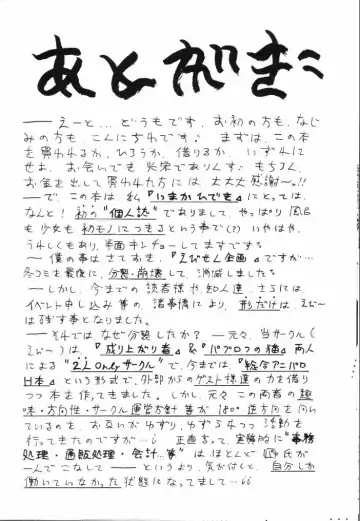 あとがき
――えーと…どうもです。お初の方も、なじ
みの方も、こんにちわです。まずは、この本
を買われるか、ひろうか、借りるか、いずれに
せよ、お会いでき光栄でありんす。もちろん、
お金を出して買われた方には大大大感謝〜。!!
――で、この本は、私『いまかひでき』にとっては、
なんと!初の"個人誌"でありまして、やっぱり
も少女も初モノにつきるという事で(?)いやはや、
うれしくもあり、半面キンチョーしてますですう
〜僕の事はさておき、『えびせん企画』ですが…
冬コミを最後に、分裂・崩壊して、消滅しました
――しかし、今までの読者様や知人達、さらには
イベント申し込み等の諸事情により、形だけは、えび〜
は残す事となりました。
――それではなぜ分裂したか?―元々、当サークル(
えび〜)は、『成り上がり者』&『パブロフの猫』両人
による"2人Onlyサークル"で、今までは、『総合アニパロ
H本』という形式で、外部からのゲスト様達の力を借り
つつ本を作ってきました。しかし、元々この両者の趣
味・方向性・サークル運営方針等が180°逆方向を向い
ているのを、お互いがゆずり、ゆずらるつつ活動を
行ってきたのですが…。正直言って、実際的に"事務
処理・通販処理・会計…等"はほとんど 氏が
一人でこなして――というより、気が付くと、自分しか
働いていなかった状態になってまして…